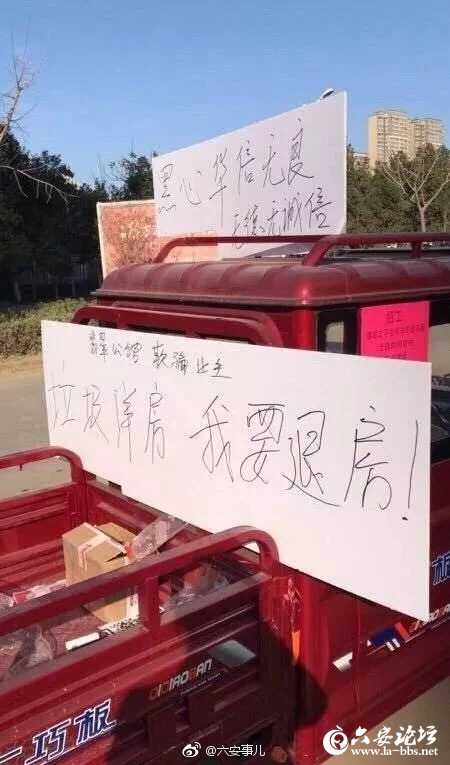 黑心华信无良
无德无诚信
翡翠公馆 欺骗业主
垃圾洋房 我要退房!
招工
QIQIAOBAN
七巧板
板
@六安事儿
六安论坛
www.la-bbs.net